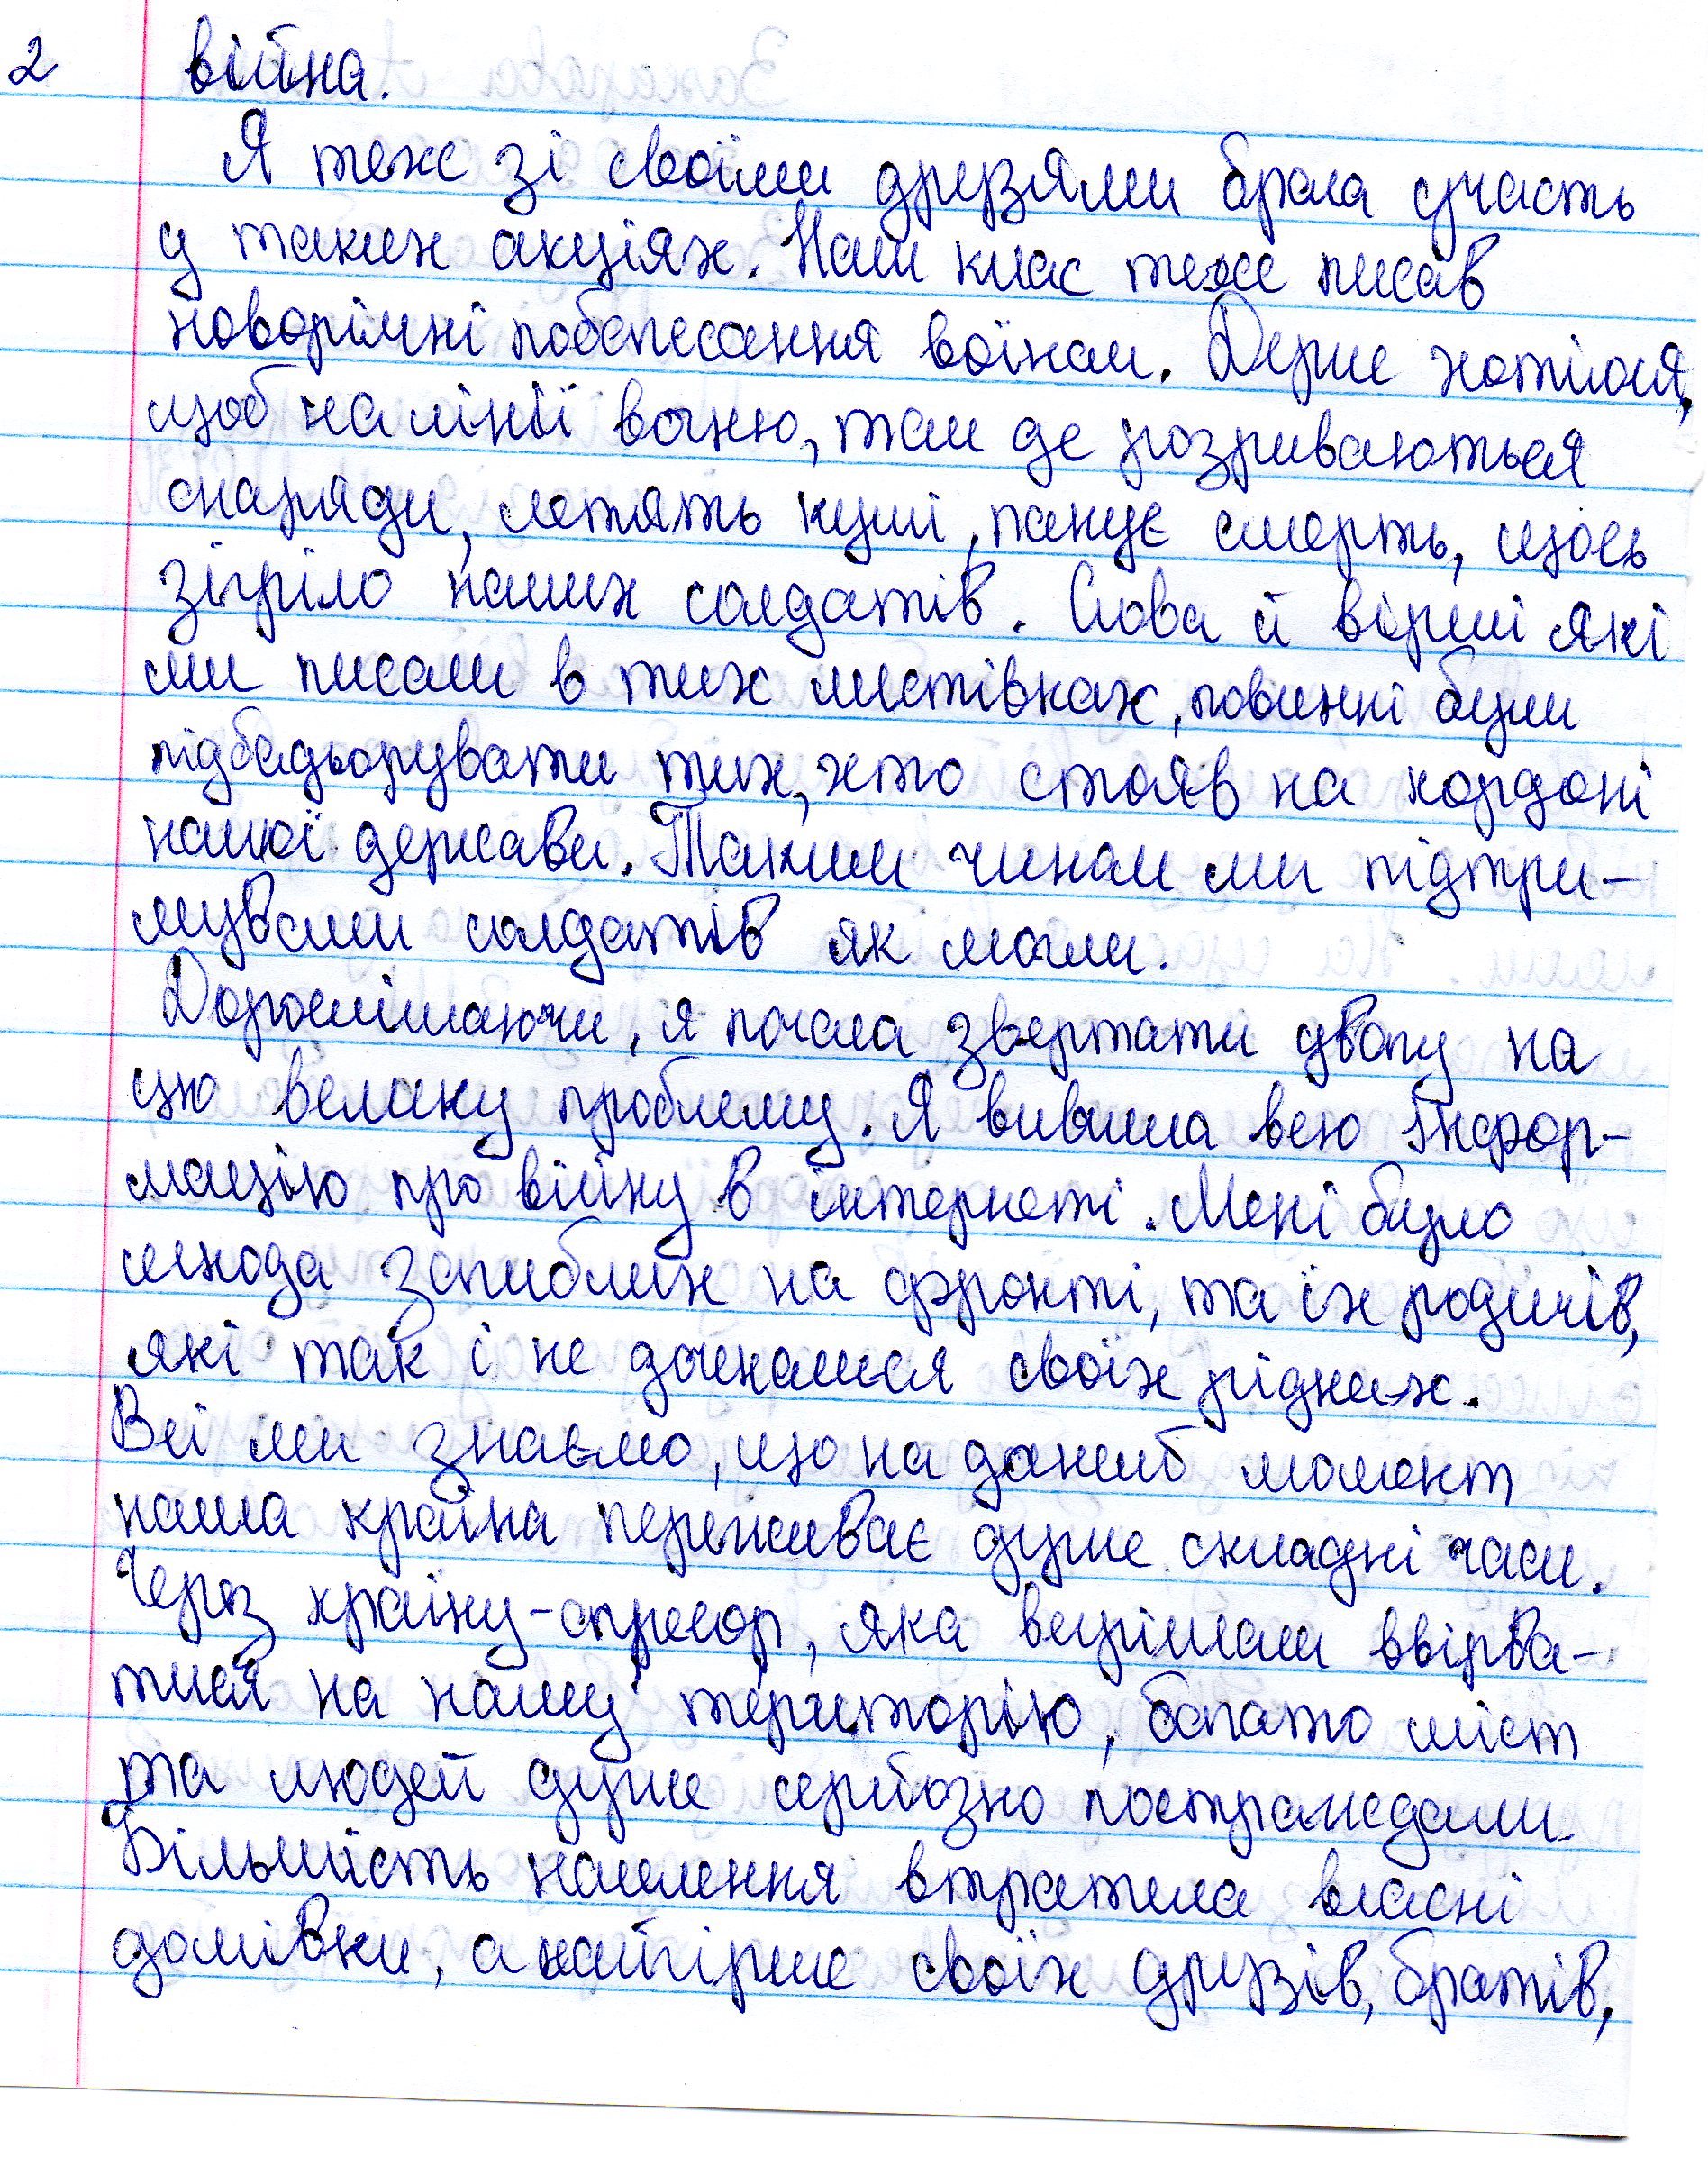 2 війна.
Я теж зі своїми друзями брала участь
у таких акціях. Наш клас теж писав
новорічні побажання воїнам. Дуже хотілося,
щоб на лінії вогню, там де розриваються
снаряди, летять кулі, панує смерть, щось
зігріло наших солдатів. Слова й вірші які
ми писали в тих листівках, повинні були
підбадьорувати тих, хто стояв на кордоні
нашої держави. Таким чином ми підтри-
мували солдатів як могли.
Дорослішаючи, я почала звертати увагу на
цю велику проблему. Я вивчила всю інфор-
мацію про війну в інтернеті. Мені було
шкода загиблих на фронті, та їх родичів,
які так і не дочекалися своїх рідних.
Всі ми знаємо, що на даний момент
наша країна переживає дуже складні часи.
Через країну-агресор, яка вирішила ввірва-
тися на нашу територію, багато міст
та людей дуже серйозно постраждали.
Більшість населення втратила власні
домівки, а найгірше своїх друзів, братів,